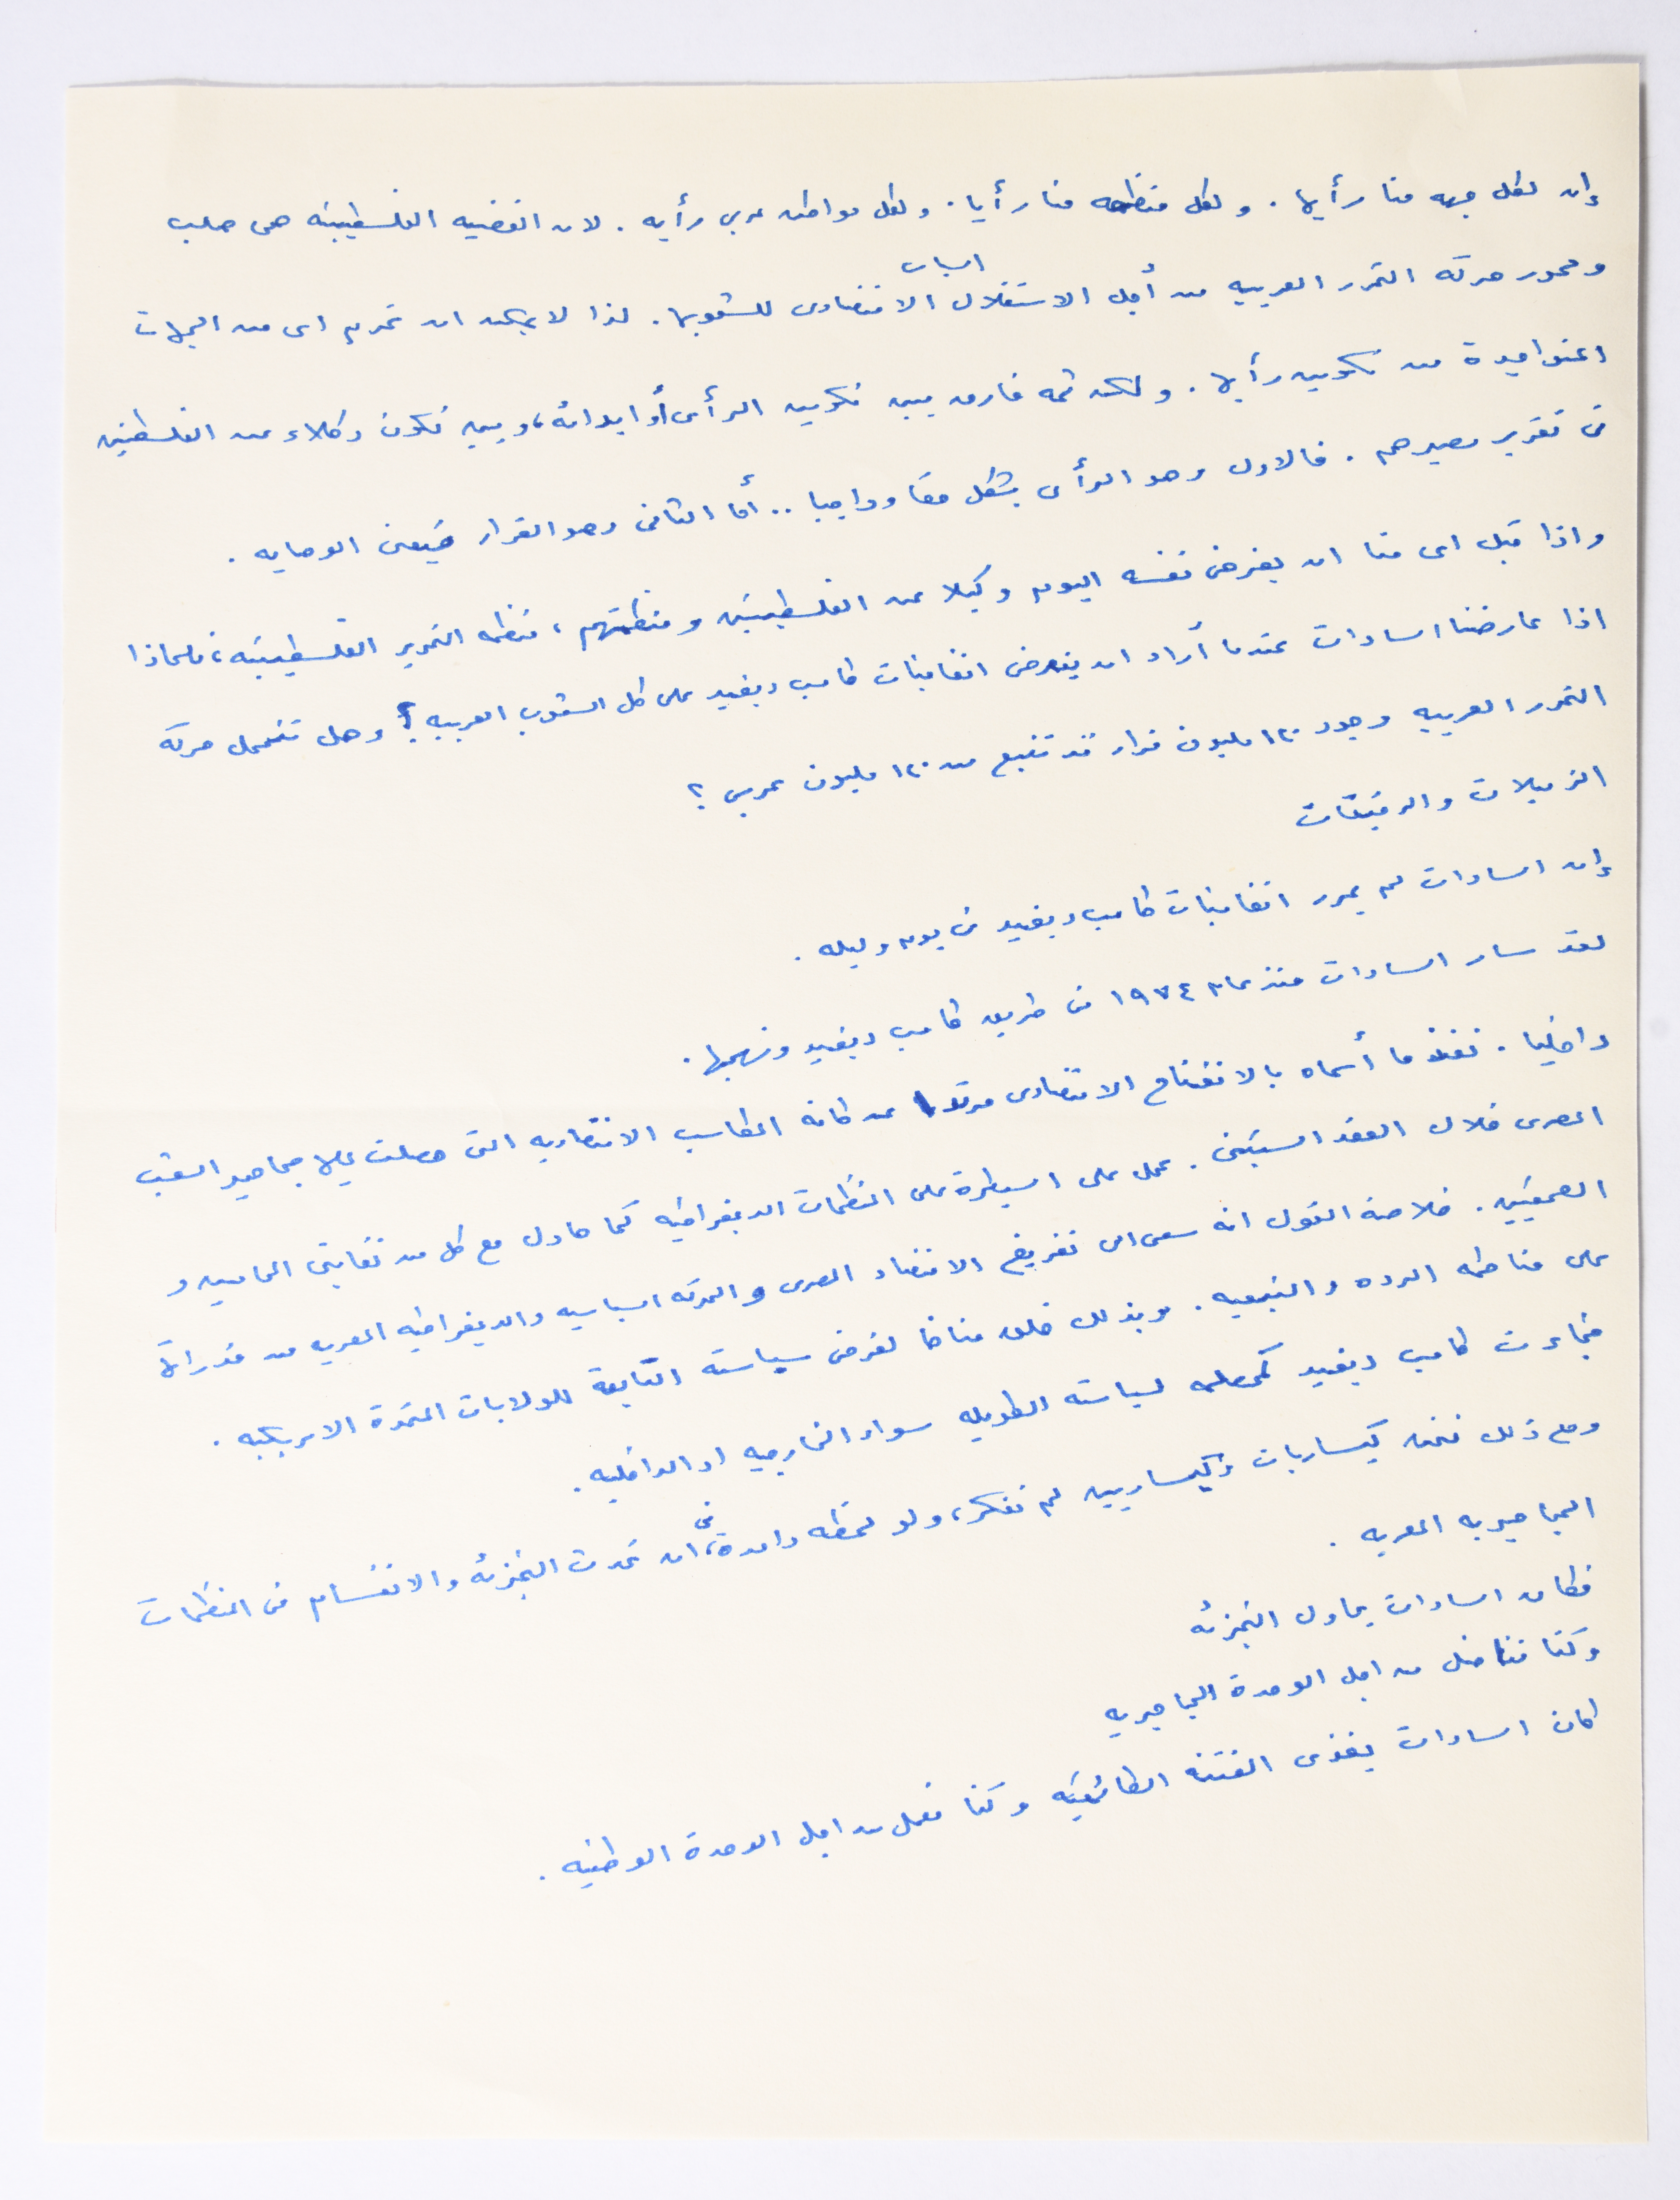 إن لكل جبهه منا رأيها . و لكل منظمه منا رأيا . و لكل مواطن عربي رأيه . لان القضيه الفلسطينيه هى صلب
ومحور حركه التحرر العربيه من أجل الاستقلال السياسى الاقتصادى للشعوبها . لذا لا يمكن ان تحرم اى من الجهات
من تكوين رأيها . و لكن ثمه فارق بين تكوين الرأى أو ابدائه ، و بين تكون وكلاء عن الفلسطينين
فى تقرير مصيرهم . فالاول وهو الرأى يشكل حقا وواجبا .. أما الثانى وهو القرار فيعنى الوصايه .
و اذا قبل اى منا ان يفرض نفسه اليوم وكيلا عن الفلسطينين و منظمتهم ، منظمه التحرير الفلسطينيه ، فلماذا
اذا عارضنا السادات عندما أراد ان يفرض اتفاقيات كامب ديفيد على كل الشعوب العربيه ؟ وهل تتحمل حركه
التحرر العربيه وجود ١٢٠ مليون قرار قد تنبع من ١٢٠ مليون عربي ؟
الزميلات والرفيقات
إن السادات لم يمرر اتفاقيات كامب ديفيد فى يوم و ليله .
لقد سار السادات منذ عام ١٩٧٤ فى طريق كامب ديفيد ونهجها .
داخليا . نفذ ما أسماه بالانفتاح الاقتصادى مرتدا عن كافه المكاسب الاقتصاديه التى حصلت عليها جماهير الشعب
المصرى خلال العقد الستينى . عمل على السيطرة على المنظمات الديمقراطيه كما حاول مع كل من نقابتى المحاميين و
الصحفيين . خلاصة القول انه سعى الى تفريغ الاقتصاد المصرى و الحركه السياسيه والديمقراطيه المصريه من قدراتها
على مناطحه الرده والتبعيه . وبذلك خلق مناخا لفرض سياسته التابعة للولايات المتحدة الامريكيه .
فجاءت كامب ديفيد كمحصلمه لسياسته الطويله سواء الخارجيه او الداخليه .
ومع ذلك فنحن كيساريات وكيساريين لم نفكر ، ولو لحظه واحدة ، فى ان تحدث التجزئه والانقسام فى المنظمات
الجماهيريه المصريه .
فكان السادات يحاول التجزئه
وكنا نناضل من اجل الوحدة الجماهيريه
كان السادات يغذى الفتنه الطائفيه وكنا نعمل من اجل الوحدة الوطنيه .